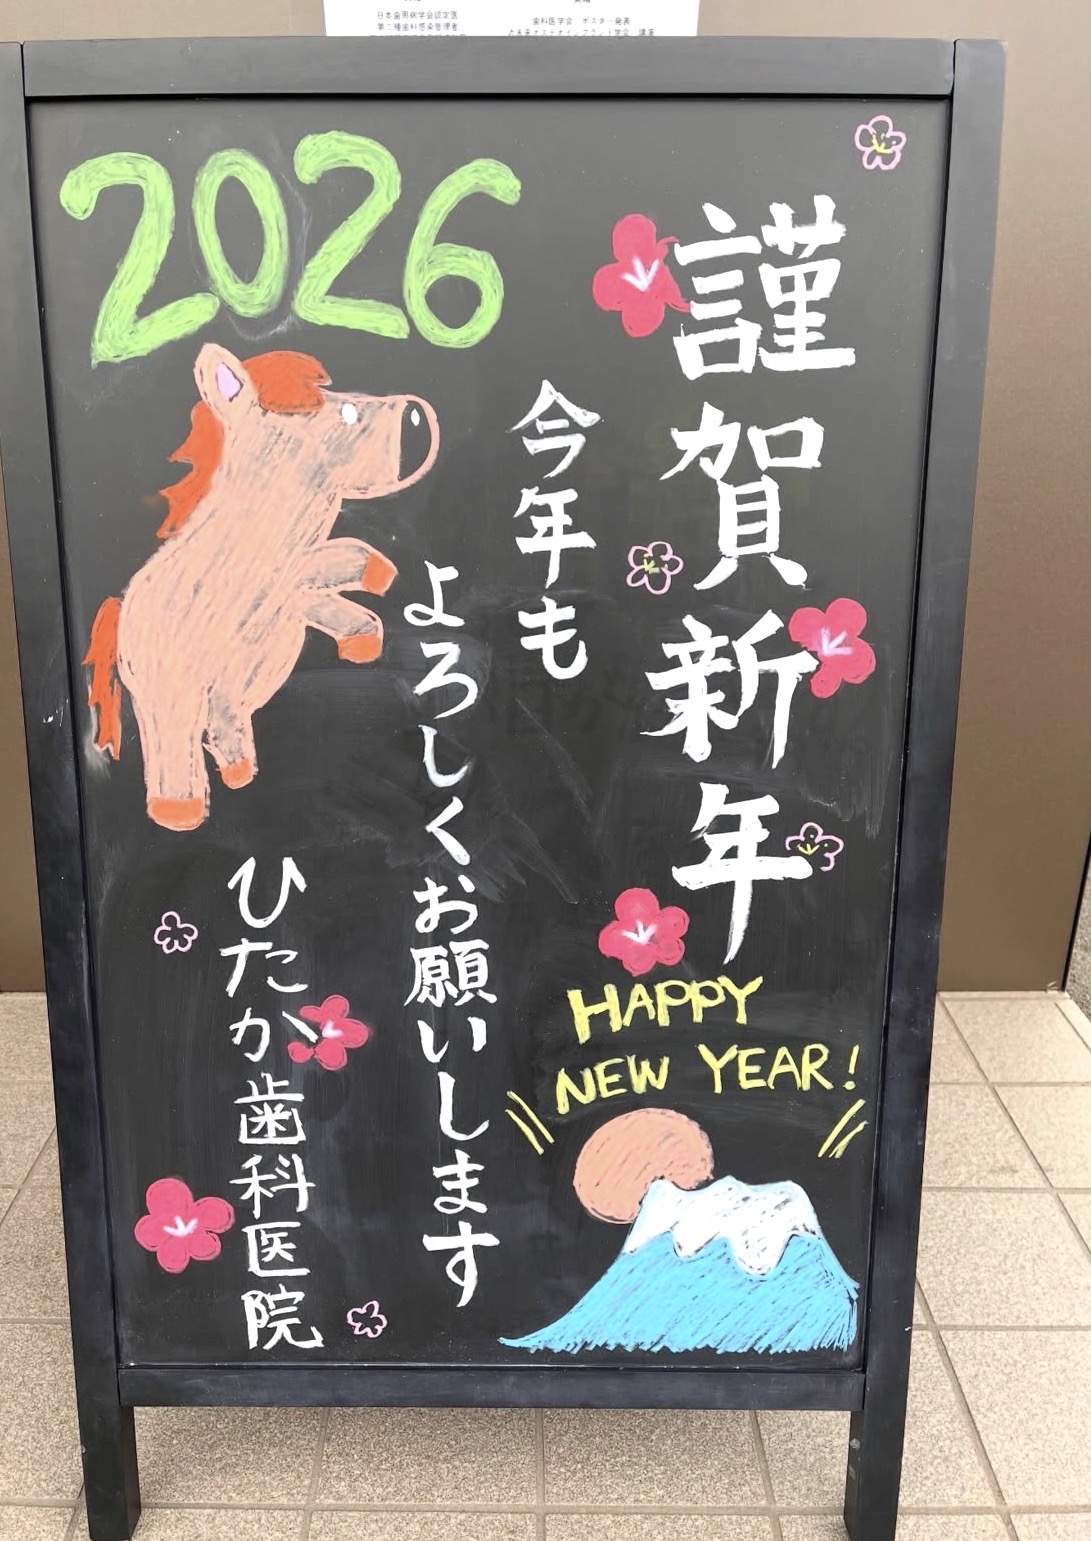 日本歯周病学会認定医
第二種歯科感染管理者
歯科医学会 ポスター発表
2026
謹賀新年
今年も
よろしくお願いします
ひたか歯科医院
HAPPY
NEW YEAR!